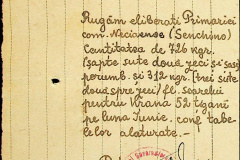 Rugăm eliberați Primăriei
com. (Senchino)
Cantitatea de 726 kgr.
(șapte sute două zeci și șase)
porumb. și 312 kgr. (trei sute
două spre zeci) fl. soarelui
pentru hrana 52 țigani
pe luna Iunie, conf. tabe-
lelor alăturate. —